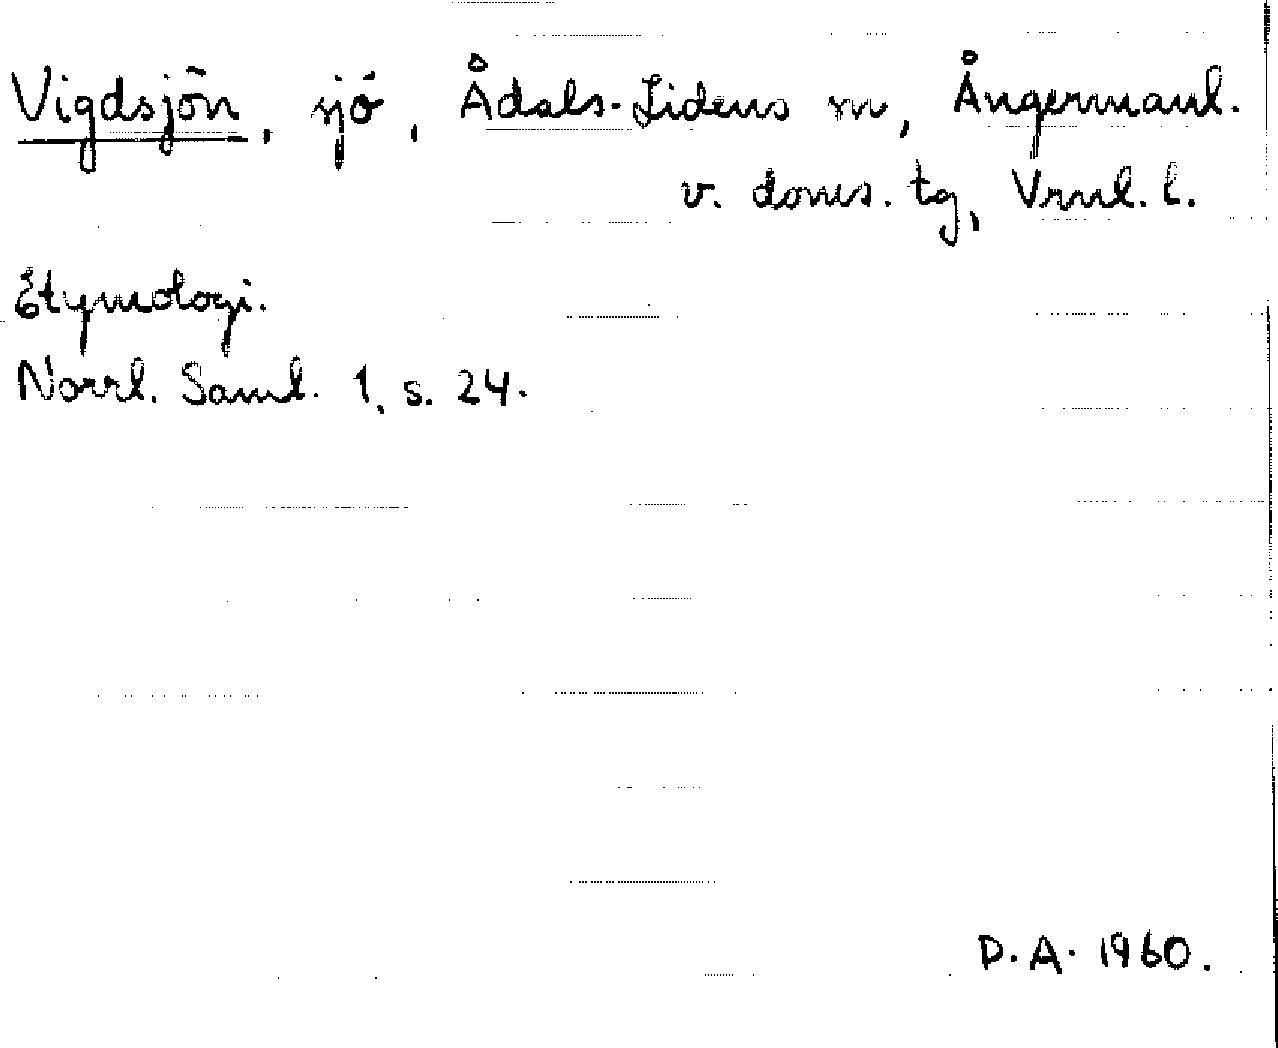 Vigdsjön, sjö, Ådals-Lidens sn, Ångermanl.
v. doms. tg, Vrnl. l.
Etymologi.
Norrl. Saml. 1, s. 24.
D. A. 1960.